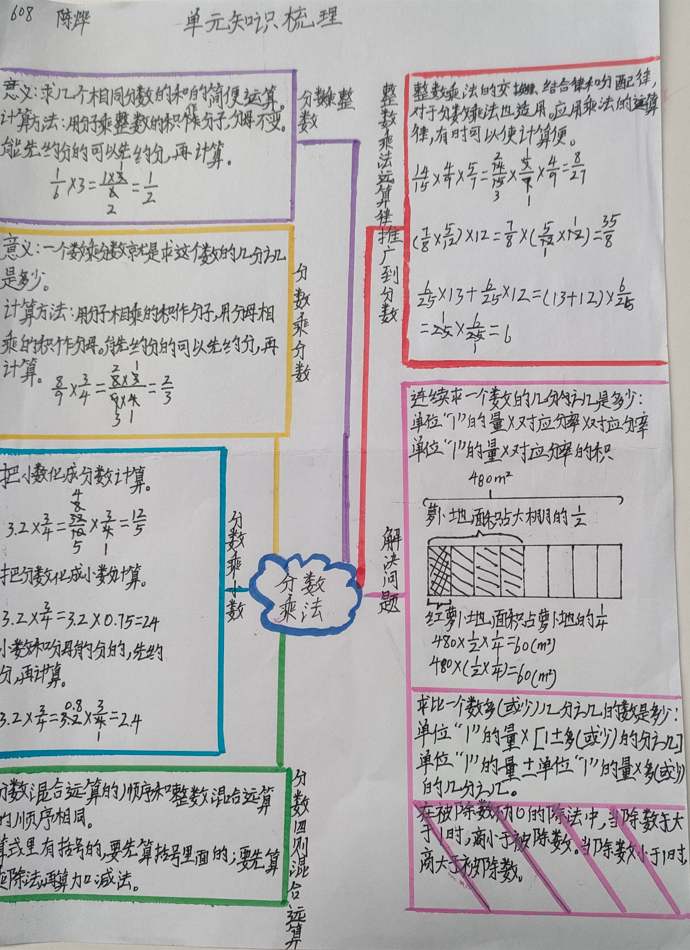 608 陈烨 单元知识梳理
意义:求几个相同分数的和的简便运算。
计算方法:用分子乘整数的积作分子,分母不变。
能先约分的可以先约分,再计算。
1/6×3=1×3/6=1/2
2
分数乘整数
意义:一个数乘分数就是求这个数的几分之几
是多少。
计算方法:用分子相乘的积作分子,用分母相
乘的积作分母。能先约分的可以先约分,再
计算。
8/9×3/4=8×3/9×4=2/3
2 1
3 1
分数乘分数
把小数化成分数计算。
3.2×3/4=32/10×3/4=12/5
4
8
5 1
把分数化成小数计算。
3.2×3/4=3.2×0.75=24
小数和分母约分的,先约
分,再计算。
3.2×3/4=3.2×3/4=2.4
0.8
1
分数乘小数
分数混合运算的顺序和整数混合运算
的顺序相同。
算式里有括号的,要先算括号里面的;要先算
乘除法,再算加减法。
分数四则混合运算
分数
乘法
整数乘法运算律推广到分数
整数乘法的交换律、结合律和分配律,
对于分数乘法也适用。应用乘法的运算
律,有时可以使计算便。
14/15×4/9×5/7=14/15×5/7×4/9=8/27
2 1
3 1
(7/8×5/12)×12=7/8×(5/12×12)=35/8
1
1
6/25×13+6/25×12=(13+12)×6/25
=25×6/25=6
1
1
解决问题
连续求一个数的几分之几是多少:
单位“1”的量×对应分率×对应分率
单位“1”的量×对应分率的积
480m²
萝卜地面积占大棚的1/2
红萝卜地面积占萝卜地的1/4
480×1/2×1/4=60(m²)
480×(1/2×1/4)=60(m²)
求比一个数多(或少)几分之几的数是多少:
单位“1”的量×[1±多(或少)的分之几]
单位“1”的量±单位“1”的量×多(或少)
的几分之几。
在被除数不为0的除法中,当除数大
于1时,商小于被除数。当除数小于1时,
商大于被除数。